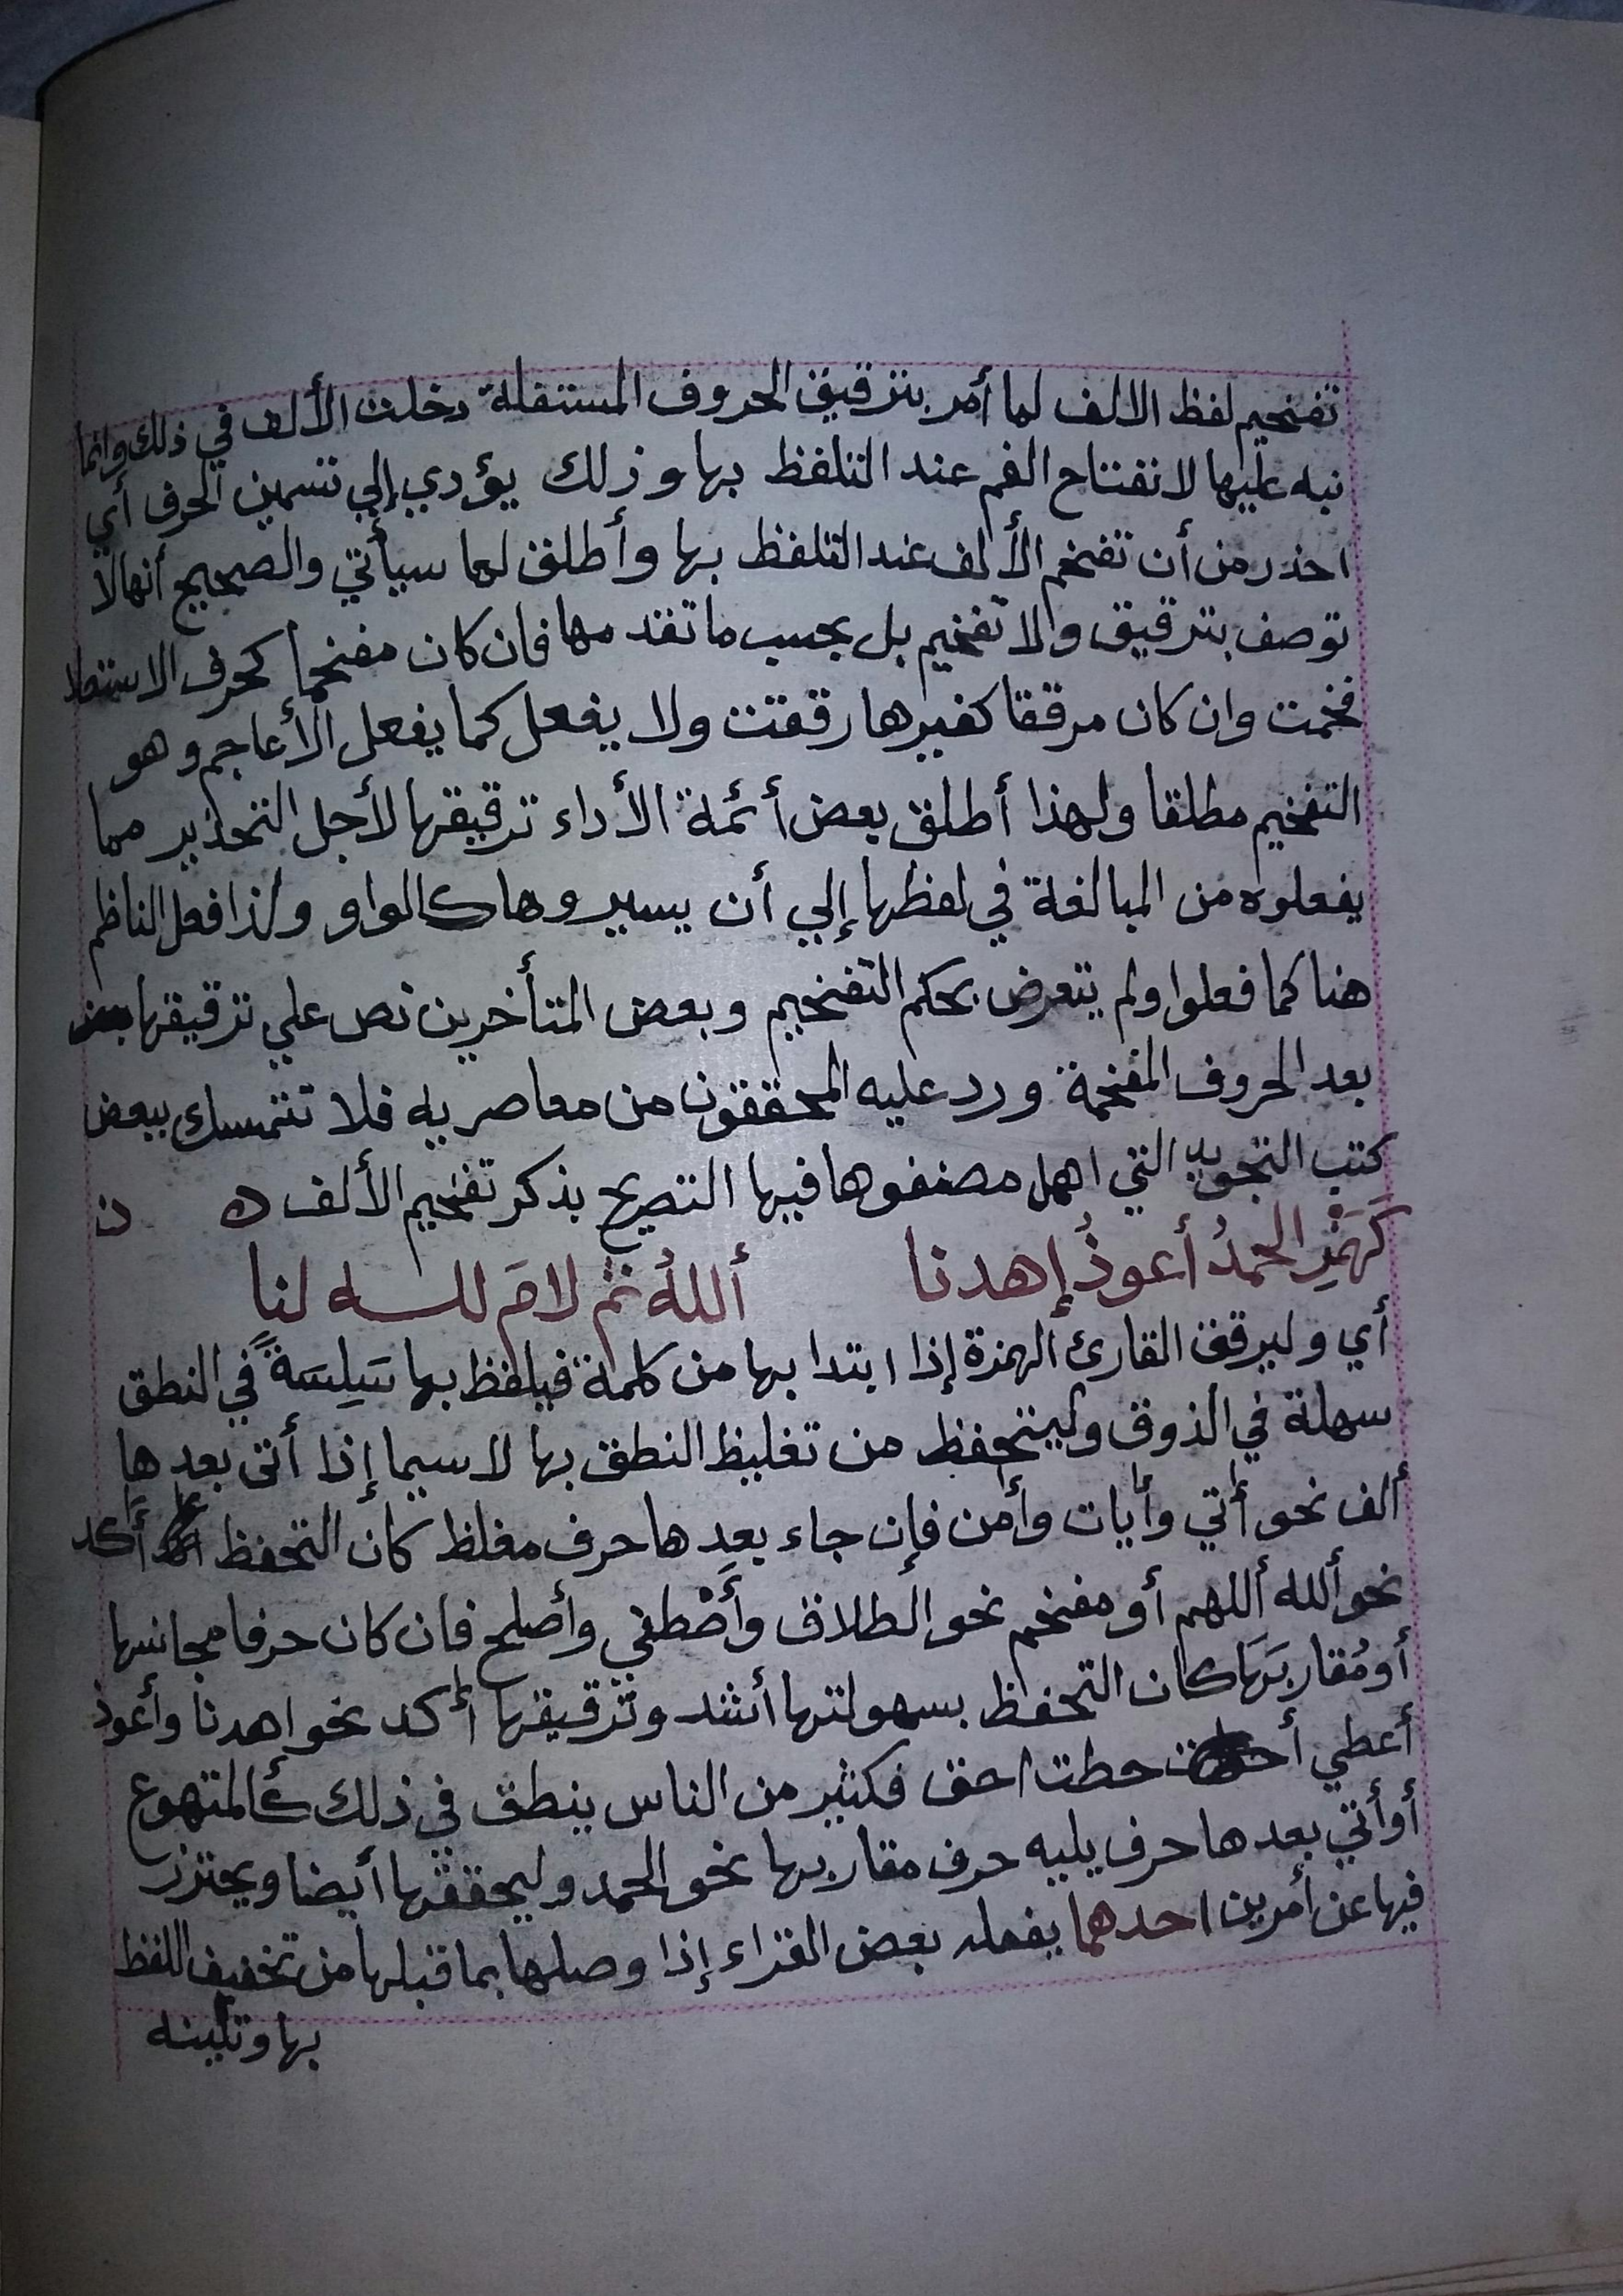 تفخيم لفظ الالف لما أمر بترقيق الحروف المستفلة دخلت الألف في ذلك وانما
نبه عليها لانفتاح الفم عند التلفظ بها وذلك يؤدي إلي تسمين الحرف أي
احذر من أن تفخم الألف عند التلفظ بها وأطلق لما سيأتي والصحيح أنها لا
توصف بترقيق ولا تفخيم بل بحسب ما تقدمها فان كان مفخما كحرف الاستعلا
فخمت وان كان مرققا كغيرها رققت ولا يفعل كما يفعل الأعاجم وهو
التفخيم مطلقا ولهذا أطلق بعض أئمة الأداء ترقيقها لأجل التحذير مما
يفعلوه من المبالغة في لفظها إلي أن يسيروها كالواو ولذا فعل الناظم
هنا كما فعلوا ولم يتعرض بحكم التفخيم وبعض المتأخرين نص علي ترقيقها
بعد الحروف المفخمة ورد عليه المحققون من معاصريه فلا تتمسك ببعض
كتب التجويد التي اهمل مصنفوها فيها التصريح بذكر تفخيم الألف ه ن
كَهَمْزِ الحمدُ أعوذُ إهدنا أللهُ ثم لامَ لله لنا
أي وليرقق القارئ الهمزة إذا ابتدا بها من كلمة فيلفظ بها سَلِسَةً في النطق
سهلة في الذوق وليتحفظ من تغليظ النطق بها لا سيما إذا أتى بعدها
ألف نحو أتي وأيات وأمن فإن جاء بعدها حرف مغلظ كان التحفظ أكد
نحو ألله أللهم أو مفخم نحو الطلاق وأَصْطفي وأصلح فان كان حرفا مجانسها
أو مُقاربَهَا كان التحفظ بسهولتها أشد وترقيقها أكد نحو اهدنا وأعوذ
أعطي حطت احق فكثير من الناس ينطق في ذلك كألمتهوع
أو أتي بعدها حرف يليه حرف مقاربها نحو الحمد وليحققها أيضا ويحترز
فيها عن أمرين احدهما يفعله بعض القراء إذا وصلها بما قبلها من تخفيف اللفظ
بها وتلينه